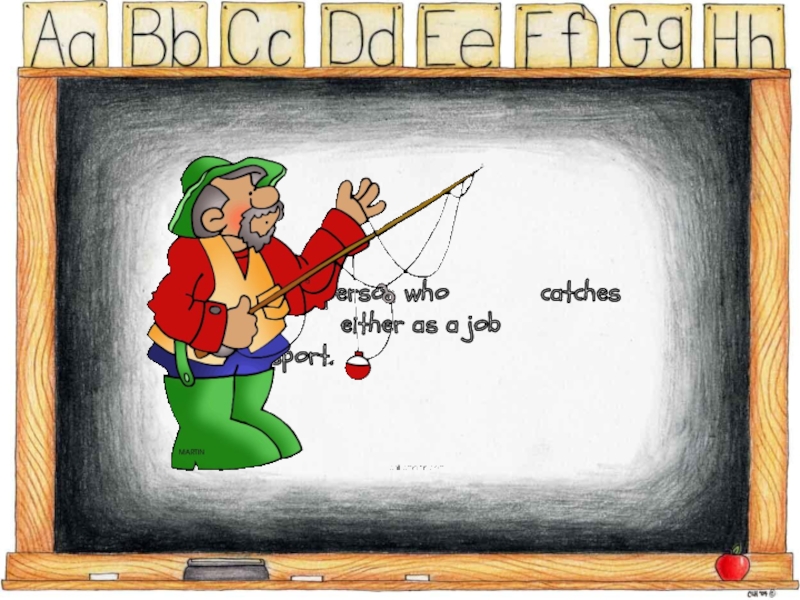 Aa Bb Cc Dd Ee Ff Gg Hh
who catches
either as a job
sport.
MARTIN